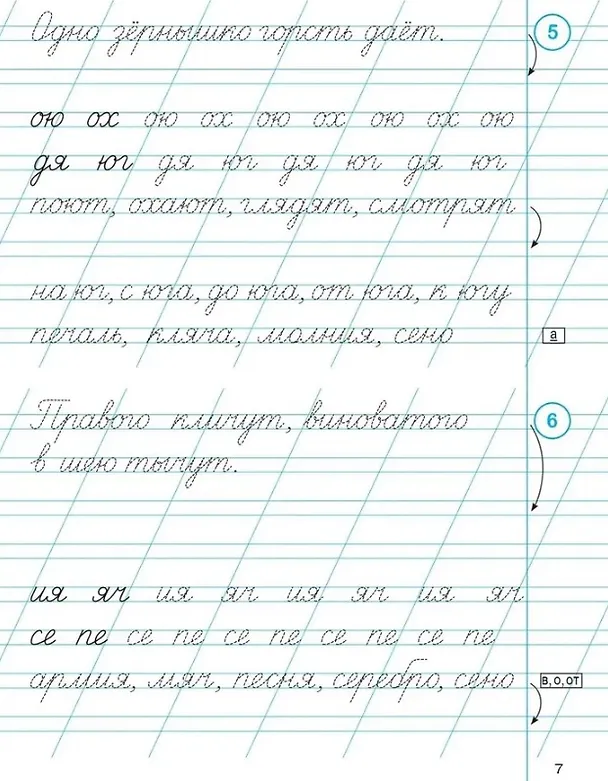 Одно зёрнышко горсть даёт.
5
ою ох ою ох ою ох ою ох ою
дя юг дя юг дя юг дя юг
поют, охают, глядят, смотрят
на юг, с юга, до юга, от юга, к югу
печаль, кляча, молния, сено
а
Правого кличут, виноватого
6
в шею тычут.
ия яч ия яч ия яч ия яч
се пе се пе се пе се пе се пе
армия, мяч, песня, серебро, сено
в, о, от
7